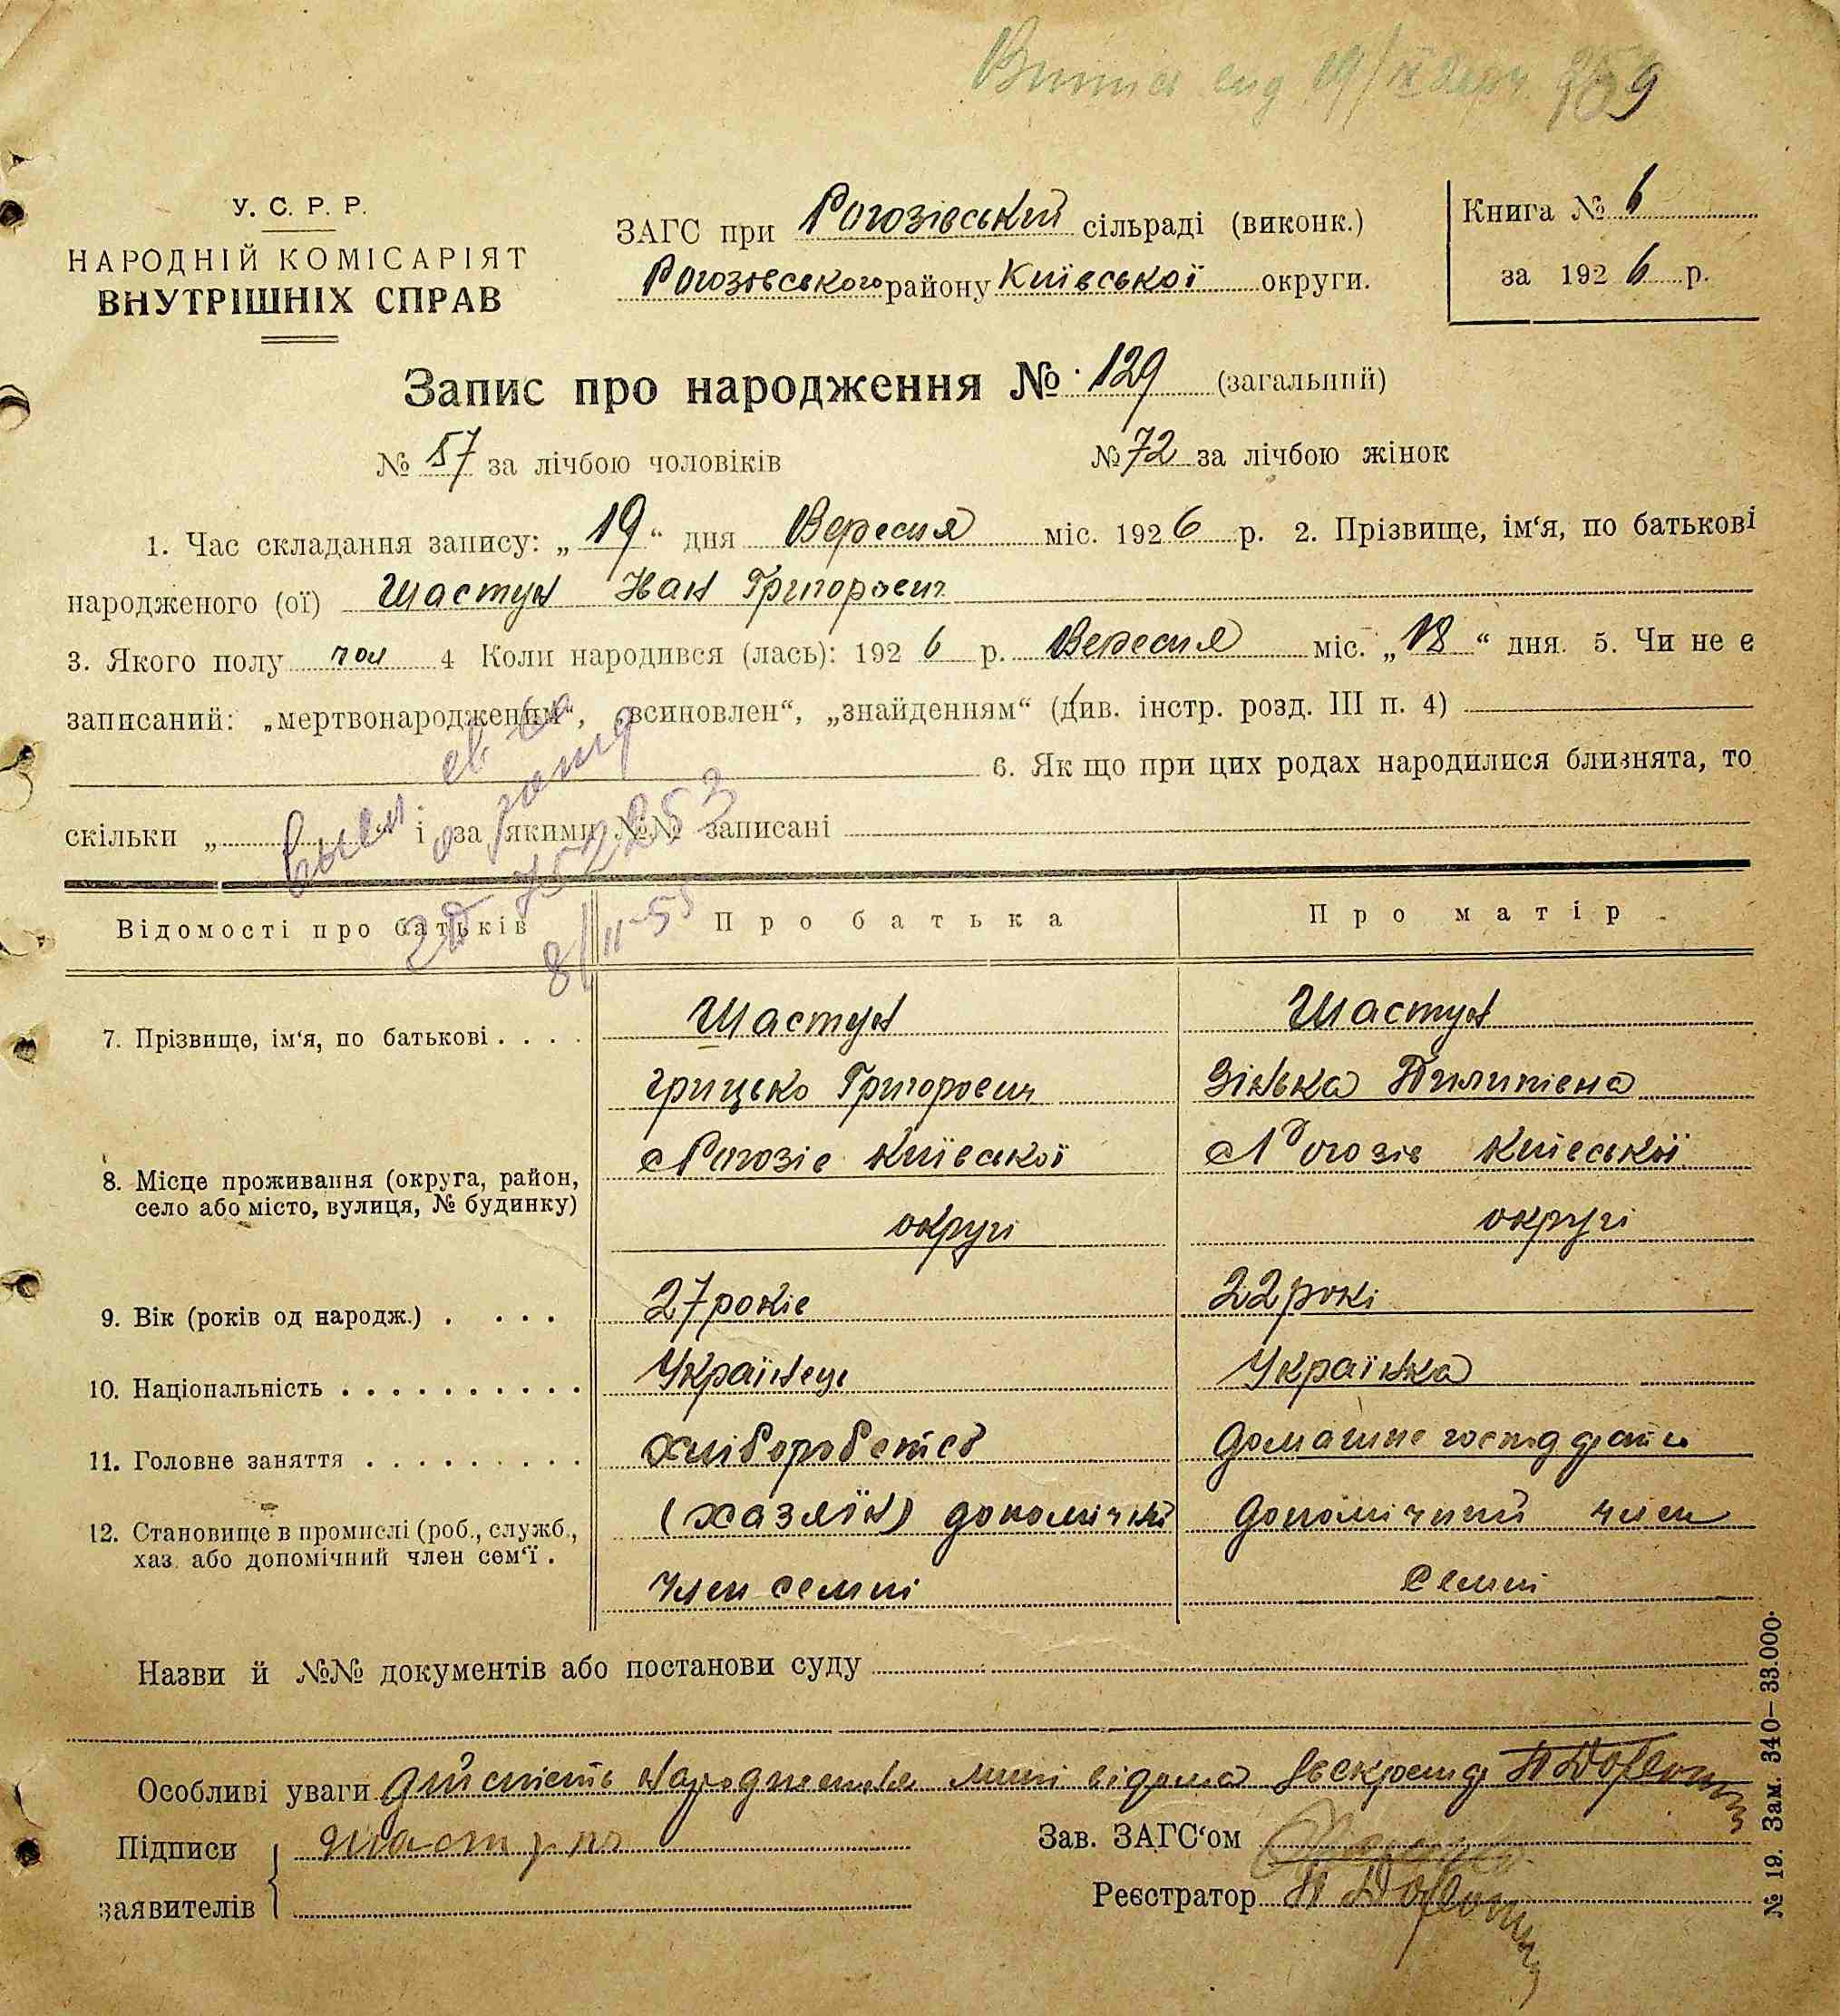 У. С. Р. Р.
НАРОДНІЙ КОМІСАРІЯТ
ВНУТРІШНІХ СПРАВ
ЗАГС при Рогозівський сільраді (виконк.)
Рогозівського району Київської округи.
Книга № 6
за 1926 р.
Запис про народження № 129 (загальний)
№ 57 за лічбою чоловіків № 72 за лічбою жінок
1. Час складання запису: „19“ дня Вересня міс. 1926 р. 2. Прізвище, ім‘я, по батькові
народженого (ої) Шастун Іван Григорович
3. Якого полу чол 4 Коли народився (лась): 1926 р. Вересня міс. „18“ дня. 5. Чи не є
записаний: „мертвонародженим“, „всиновлен“, „знайденням“ (див. інстр. розд. III п. 4)
6. Як що при цих родах народилися близнята, то
скільки „ і за якими №№ записані
8/II-55
Відомості про батьків Про батька Про матір
7. Прізвище, ім‘я, по батькові . . . . Шастун Шастун
Грицько Григорович Зінька Пилипівна
8. Місце проживання (округа, район, село або місто, вулиця, № будинку) с Рогозів Київської с Рогозів Київської
округі округі
9. Вік (років од народж.) . . . . 27 років 22 рокі
10. Національність . . . . . . . . . . Українець Українка
11. Головне заняття . . . . . . . . . хліборобство домашнє
12. Становище в промислі (роб., служб., хаз. або допомічний член сем‘ї . (хазяїн) допомічний допомічний член
член семні семні
Назви й №№ документів або постанови суду
Особливі уваги дійсність народження мині відома
Підписи заявителів Шастун
Зав. ЗАГС‘ом
Реєстратор
№ 19. Зам. 340—33.000.